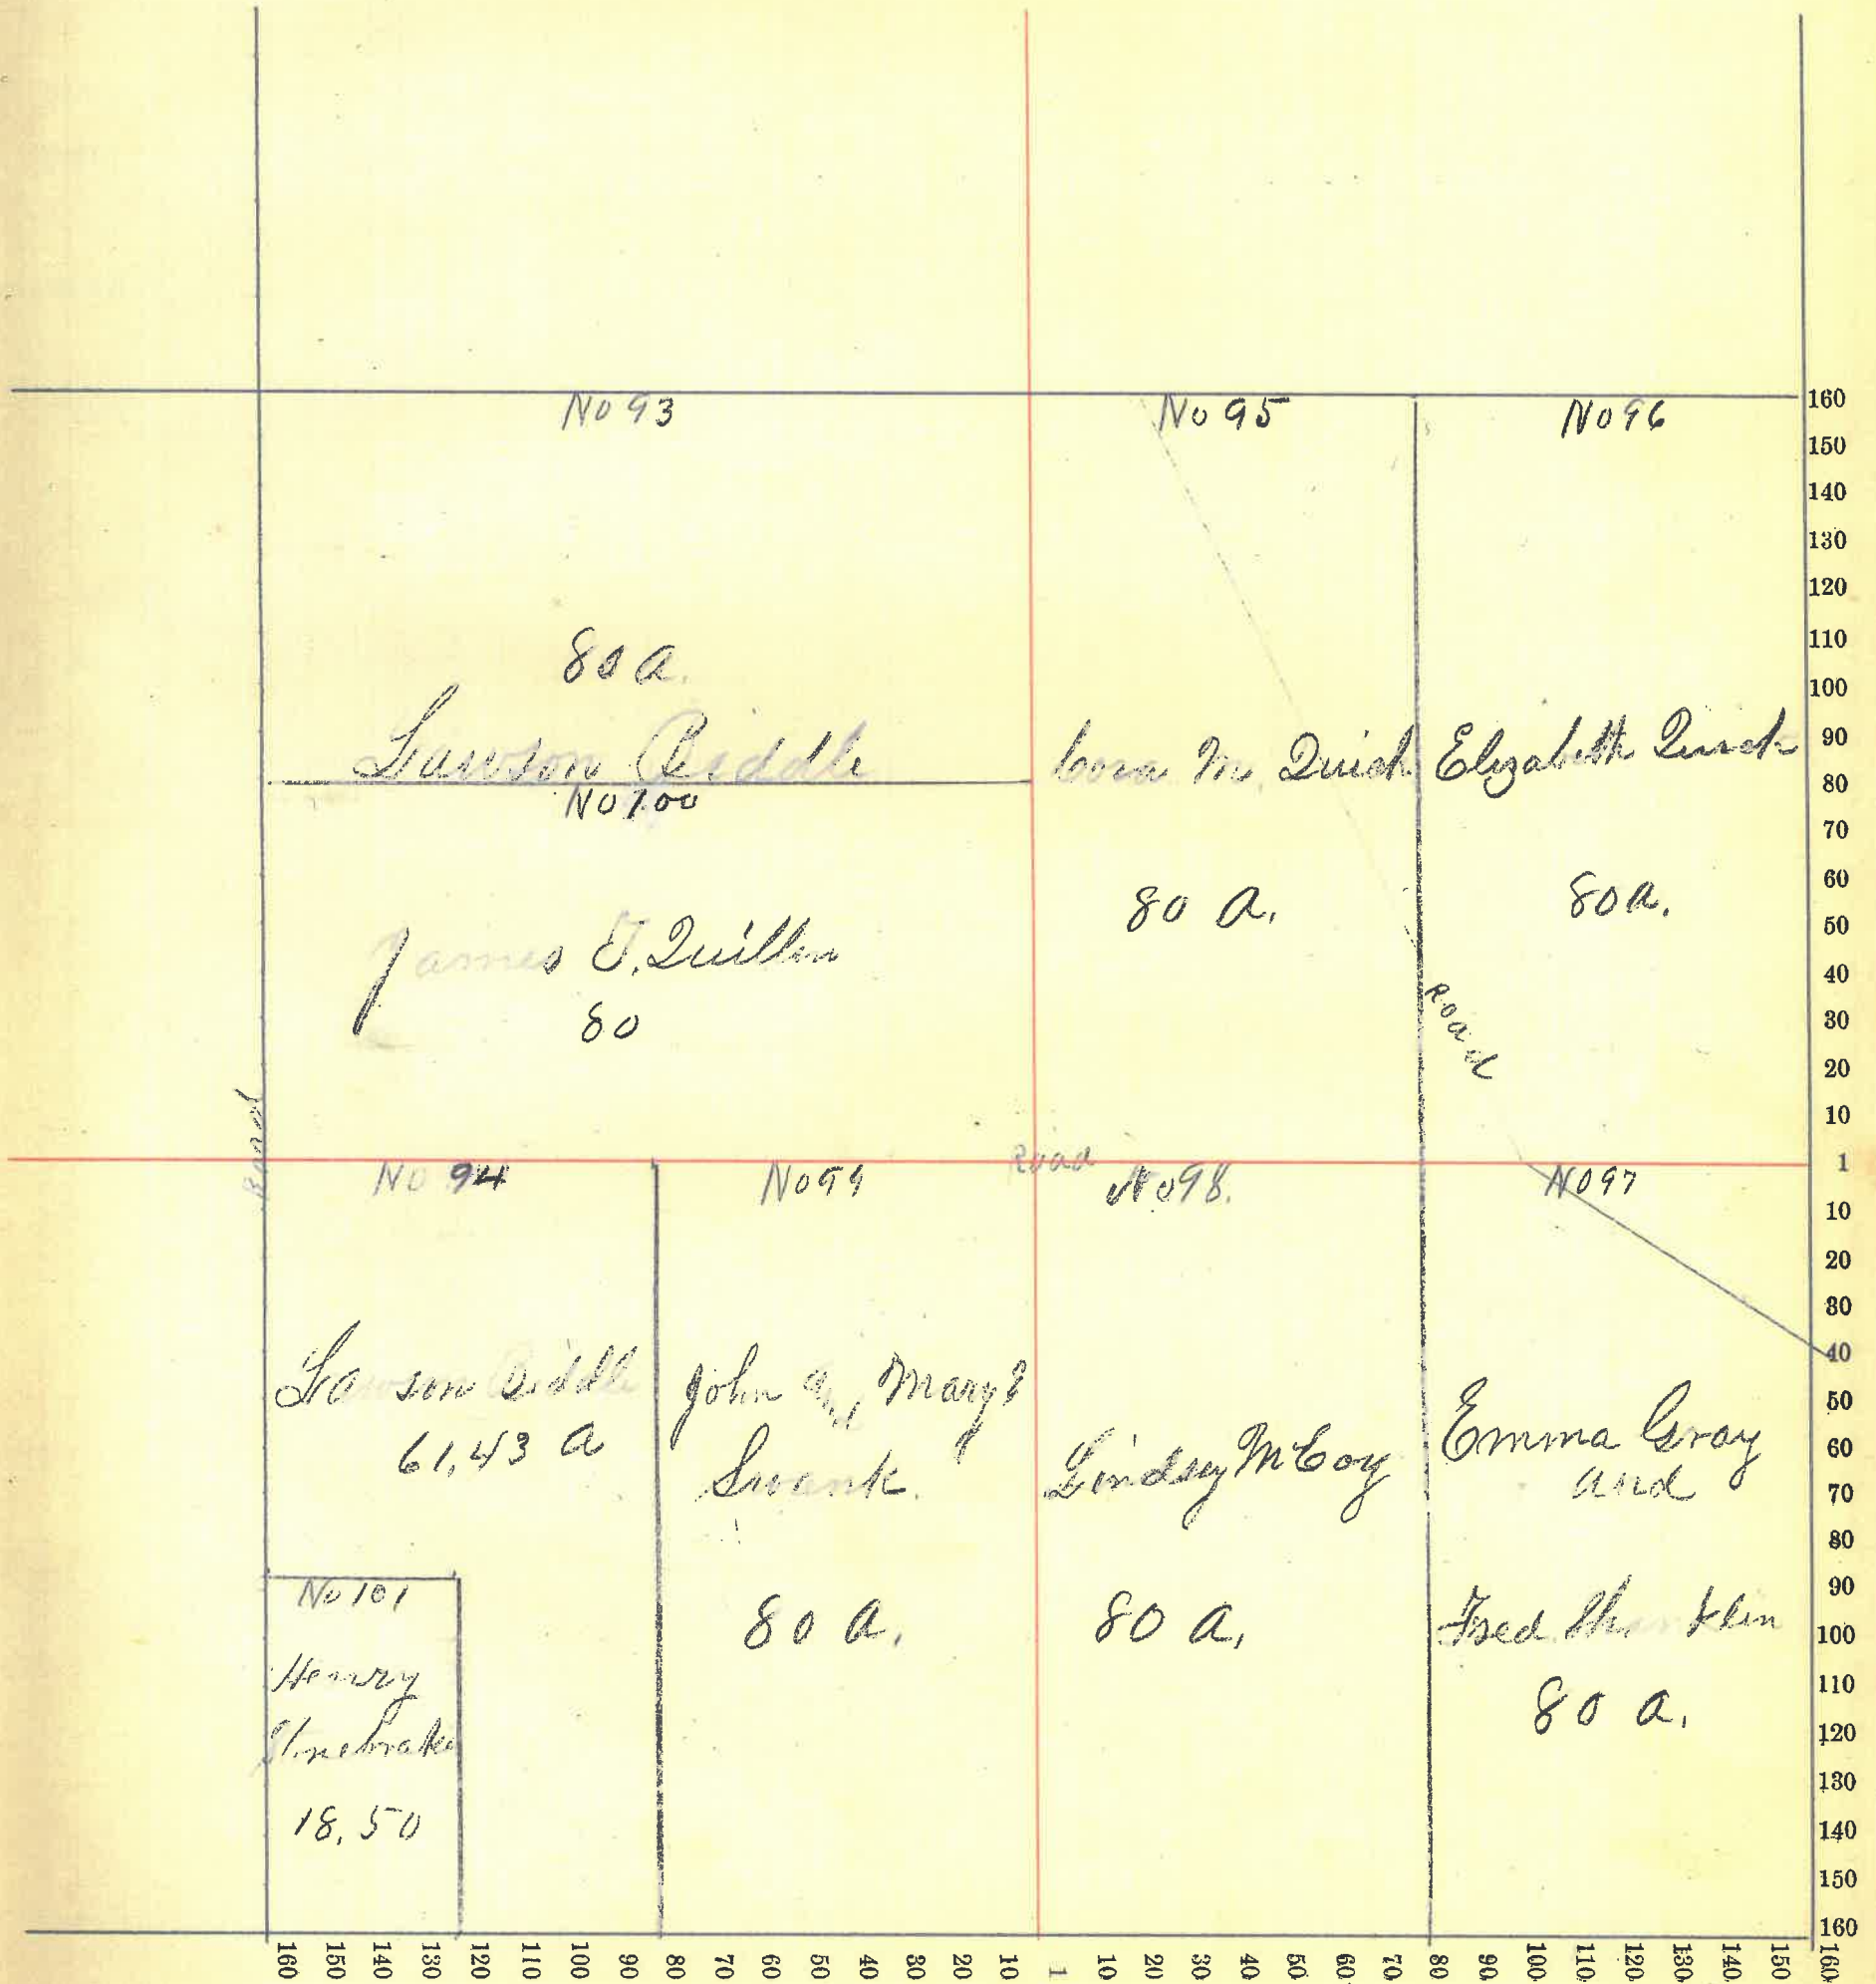 No 93
80 a.
Lawson Riddle
No 100
James T. Quillen
80
Road
No 95
Cora M. Quick
80 A.
No 96
Elizabeth Quick
80 a.
Road
Road
No 94
Lawson Riddle
61,43 a
No 101
Henry
18.50
No 99
John and Mary
Swank.
80 a.
No 98.
Lindsey McCoy
80 a,
No 97
Emma Gray
and
Fred
80 a.
160
150
140
130
120
110
100
90
80
70
60
50
40
30
20
10
1
10
20
30
40
50
60
70
80
90
100
110
120
130
140
150
160
160 150 140 130 120 110 100 90 80 70 60 50 40 30 20 10 1 10 20 30 40 50 60 70 80 90 100 110 120 130 140 150 160